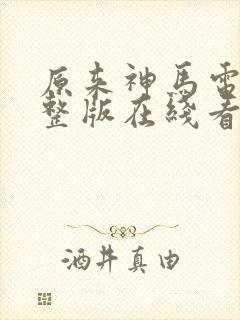 原来神馬電
整版在綫看
酒井真由